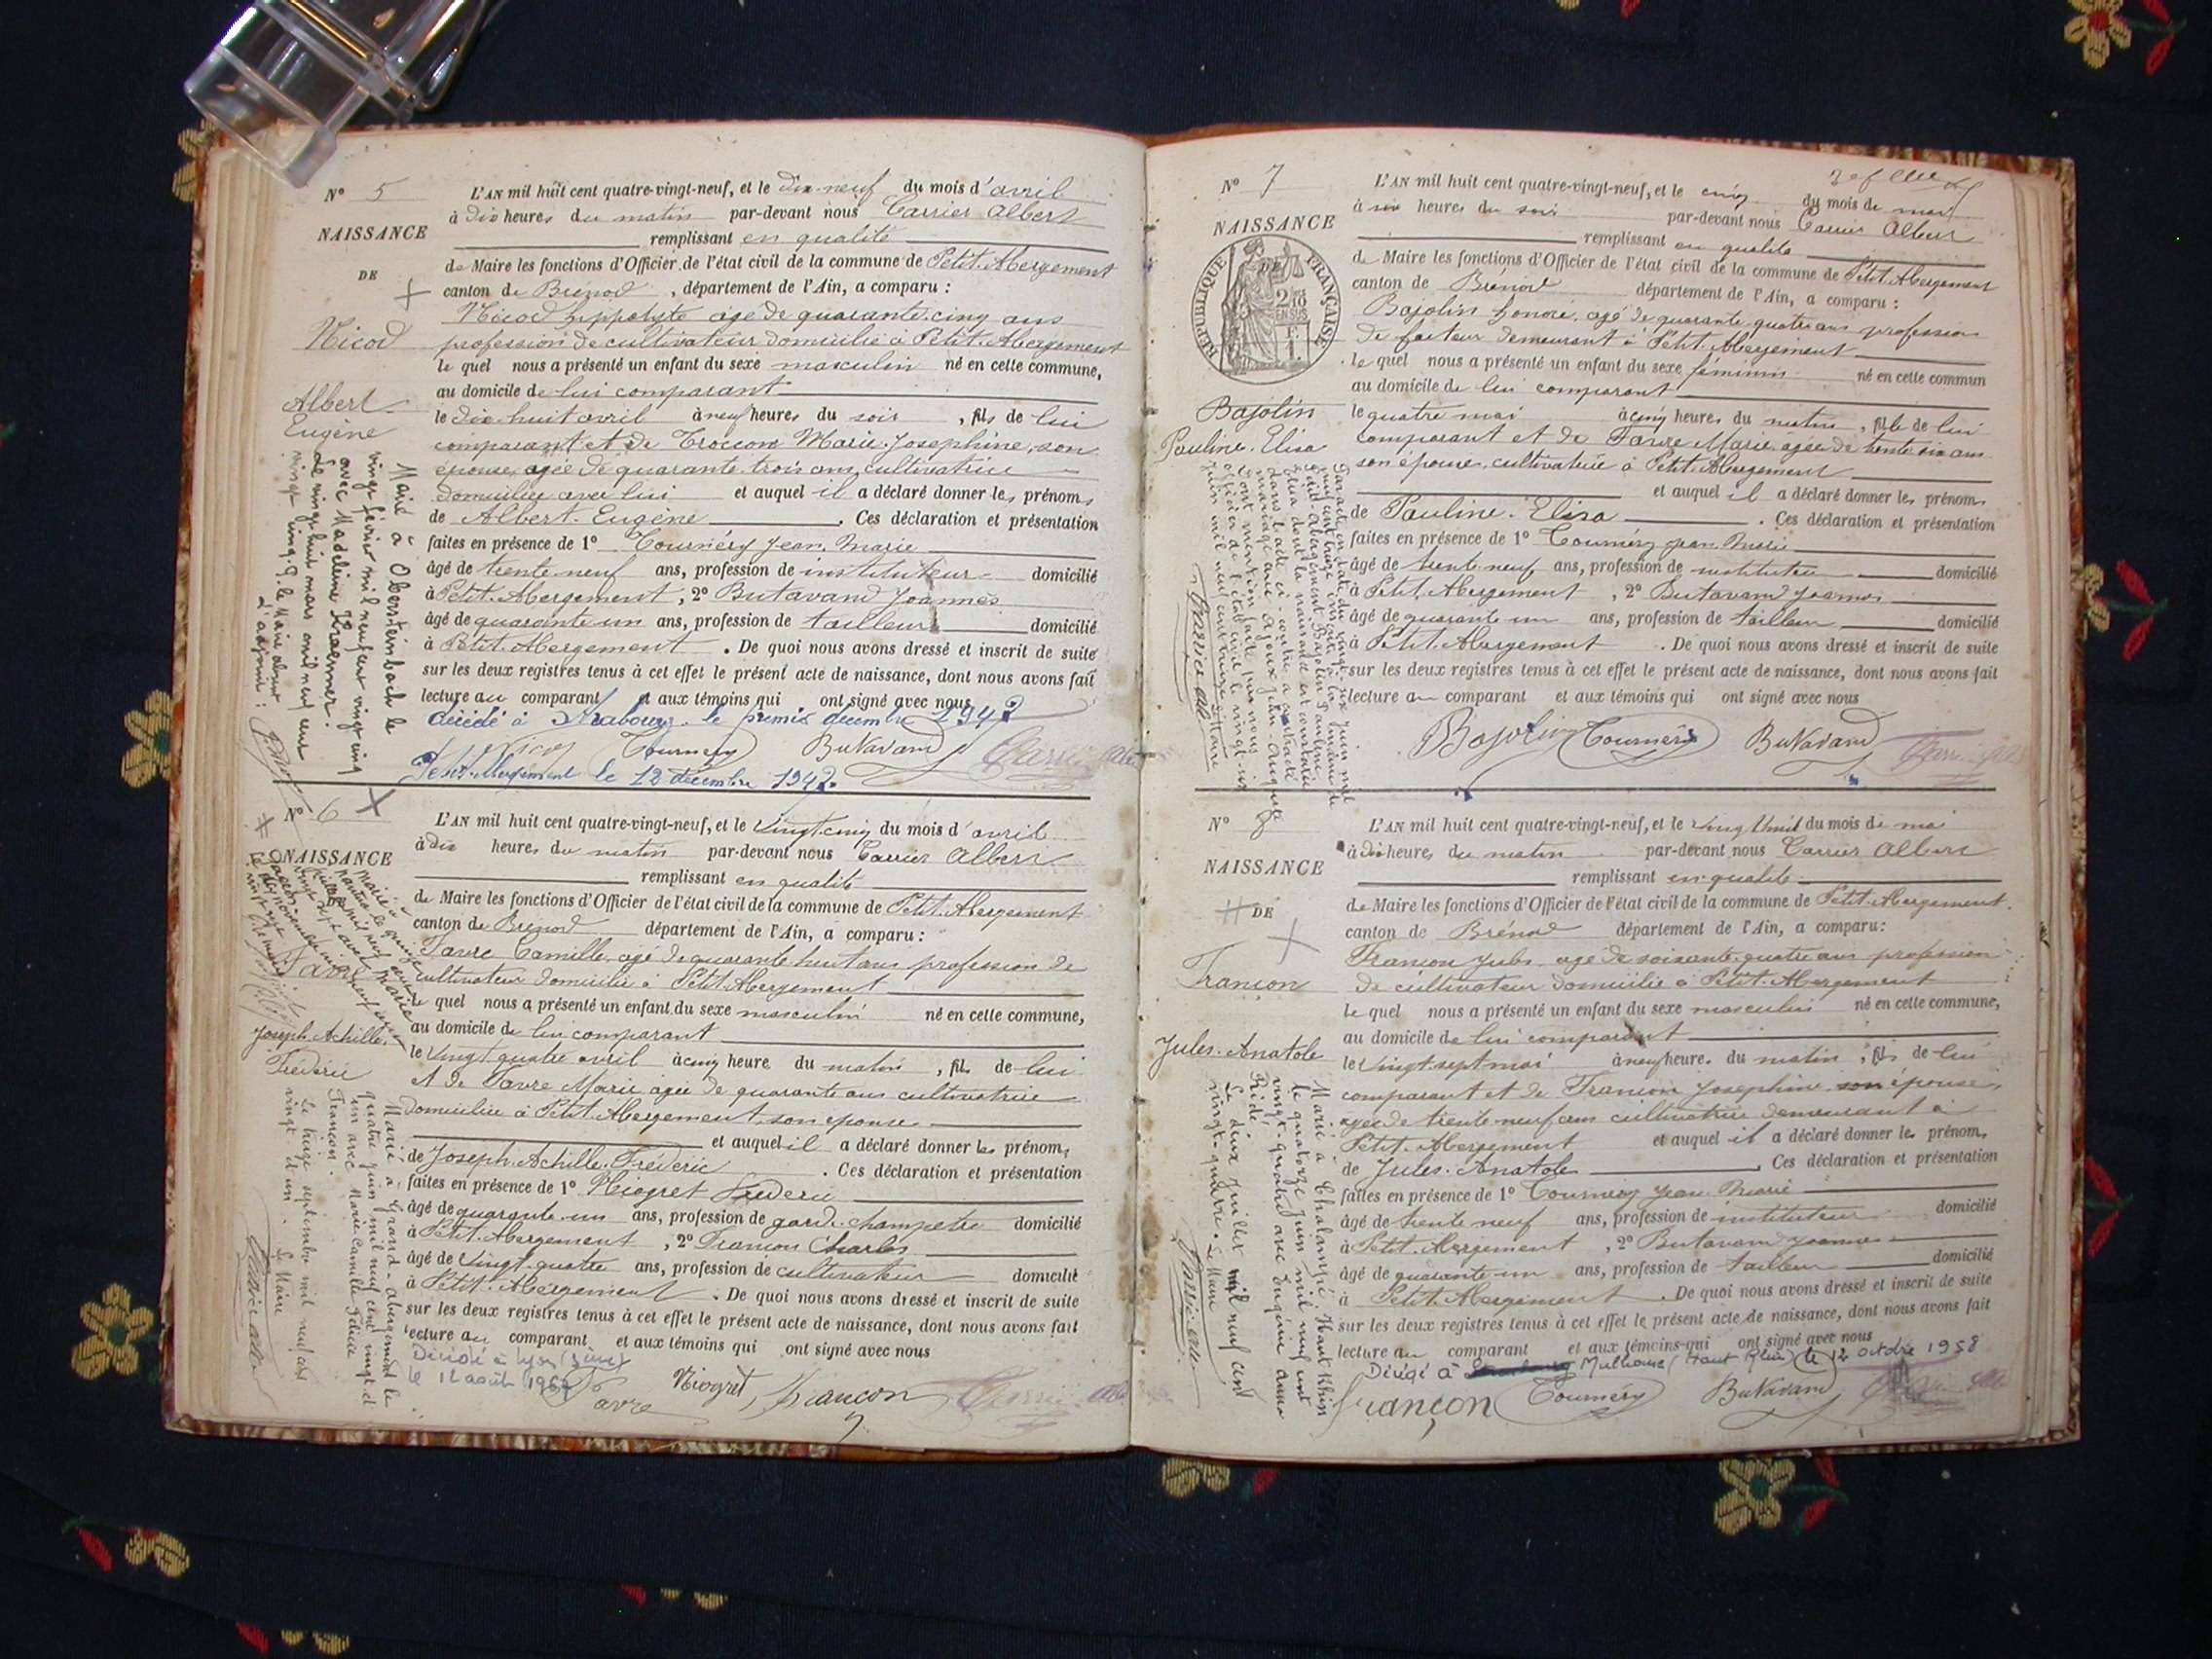 N° 5
NAISSANCE
DE
Nicod
Albert
Eugène
L'AN mil huit cent quatre-vingt-neuf, et le dix-neuf du mois d'avril
à dix heures du matin par-devant nous Carrier Albert
remplissant en qualité
de Maire les fonctions d'Officier de l'état civil de la commune de Petit-Abergement
canton de Brénod, département de l'Ain, a comparu :
Nicod hippolyte âgé de quarante-cinq ans
profession de cultivateur domicilié à Petit-Abergement
le quel nous a présenté un enfant du sexe masculin né en cette commune,
au domicile de lui comparant
le dix-huit avril à neuf heures du soir, fils de lui
comparant et de Troccon Marie-Josephine, son
épouse, agée de quarante-trois ans, cultivatrice
domiciliée avec lui et auquel il a déclaré donner les prénoms
de Albert-Eugène. Ces déclaration et présentation
faites en présence de 1° Tournéry Jean-Marie
âgé de trente-neuf ans, profession de instituteur domicilié
à Petit-Abergement, 2° Butavand Joannès
âgé de quarante-un ans, profession de tailleur domicilié
à Petit-Abergement. De quoi nous avons dressé et inscrit de suite
sur les deux registres tenus à cet effet le présent acte de naissance, dont nous avons fait
lecture au comparant et aux témoins qui ont signé avec nous
décédé à Strasbourg le premier décembre 1942
Nicod Tournéry Butavand
Petit-Abergement le 12 décembre 1942.
Marié à Obersteinbach le
vingt février mil neuf cent vingt cinq
avec Madeleine Kraemer.
Le vingt huit mars mil neuf cent
vingt cinq. P. le Maire absent
L'adjoint :
N° 6
NAISSANCE
Favre
Joseph-Achille
Fréderic
L'AN mil huit cent quatre-vingt-neuf, et le vingt-cinq du mois d'avril
à dix heures du matin par-devant nous Carrier Albert
remplissant en qualité
de Maire les fonctions d'Officier de l'état civil de la commune de Petit-Abergement
canton de Brénod département de l'Ain, a comparu :
Favre Camille, agé de quarante-huit ans profession de
cultivateur domicilié à Petit-Abergement
le quel nous a présenté un enfant du sexe masculin né en cette commune,
au domicile de lui comparant
le vingt-quatre avril à cinq heure du matin, fils de lui
et de Favre Marie agée de quarante ans cultivatrice
domiciliée à Petit-Abergement, son épouse
et auquel il a déclaré donner les prénoms
de Joseph-Achille-Fréderic. Ces déclaration et présentation
faites en présence de 1° Niogret Fréderic
âgé de quarante-un ans, profession de garde-champetre domicilié
à Petit-Abergement, 2° Françon Charles
âgé de vingt-quatre ans, profession de cultivateur domicilié
à Petit-Abergement. De quoi nous avons dressé et inscrit de suite
sur les deux registres tenus à cet effet le présent acte de naissance, dont nous avons fait
lecture au comparant et aux témoins qui ont signé avec nous
Décédé à Lyon
le 12 août
Favre Niogret Françon
Marié à Grand-Abergement le
quatre juin mil neuf cent vingt et
un avec Marie Camille Félicie
Françon.
Le treize septembre mil neuf cent
vingt et un. Le Maire
N° 7
NAISSANCE
DE
RÉPUBLIQUE FRANÇAISE
Bajolin
Pauline-Elisa
L'AN mil huit cent quatre-vingt-neuf, et le cinq du mois de mai
à six heures du soir par-devant nous Carrier Albert
remplissant en qualité
de Maire les fonctions d'Officier de l'état civil de la commune de Petit-Abergement
canton de Brénod département de l'Ain, a comparu :
Bajolin honoré, agé de quarante-quatre ans profession
de facteur demeurant à Petit-Abergement
le quel nous a présenté un enfant du sexe féminin né en cette commun
au domicile de lui comparant
le quatre mai à cinq heures du matin, fille de lui
comparant et de Favre Marie agée de trente-six ans
son épouse, cultivatrice à Petit-Abergement
et auquel il a déclaré donner les prénoms
de Pauline-Elisa. Ces déclaration et présentation
faites en présence de 1° Tournéry Jean-Marie
âgé de trente-neuf ans, profession de instituteur domicilié
à Petit-Abergement, 2° Butavand Joannès
âgé de quarante-un ans, profession de tailleur domicilié
à Petit-Abergement. De quoi nous avons dressé et inscrit de suite
sur les deux registres tenus à cet effet le présent acte de naissance, dont nous avons fait
lecture au comparant et aux témoins qui ont signé avec nous
Bajolin Tournéry Butavand
N° 8
NAISSANCE
DE
Françon
Jules-Anatole
L'AN mil huit cent quatre-vingt-neuf, et le vingt-huit du mois de mai
à dix heures du matin par-devant nous Carrier Albert
remplissant en qualité
de Maire les fonctions d'Officier de l'état civil de la commune de Petit-Abergement.
canton de Brénod département de l'Ain, a comparu :
Françon Jules, agé de soixante-quatre ans profession
de cultivateur domicilié à Petit-Abergement
le quel nous a présenté un enfant du sexe masculin né en cette commune,
au domicile de lui comparant
le vingt-sept mai à neuf heures du matin, fils de lui
comparant et de Françon Josephine son épouse,
agée de trente-neuf ans cultivatrice demeurant à
Petit-Abergement et auquel il a déclaré donner les prénoms
de Jules-Anatole. Ces déclaration et présentation
faites en présence de 1° Tournéry Jean-Marie
âgé de trente-neuf ans, profession de instituteur domicilié
à Petit-Abergement, 2° Butavand Joannès
âgé de quarante-un ans, profession de tailleur domicilié
à Petit-Abergement. De quoi nous avons dressé et inscrit de suite
sur les deux registres tenus à cet effet le présent acte de naissance, dont nous avons fait
lecture au comparant et aux témoins qui ont signé avec nous
Décédé à Mulhouse (Haut Rhin) le 12 octobre 1958
Françon Tournéry Butavand
Marié à Chalampé, Haut Rhin
le quatorze juin mil neuf cent
vingt-quatre avec Eugénie Anna
Ridé
Le deux juillet mil neuf cent
vingt-quatre. Le Maire